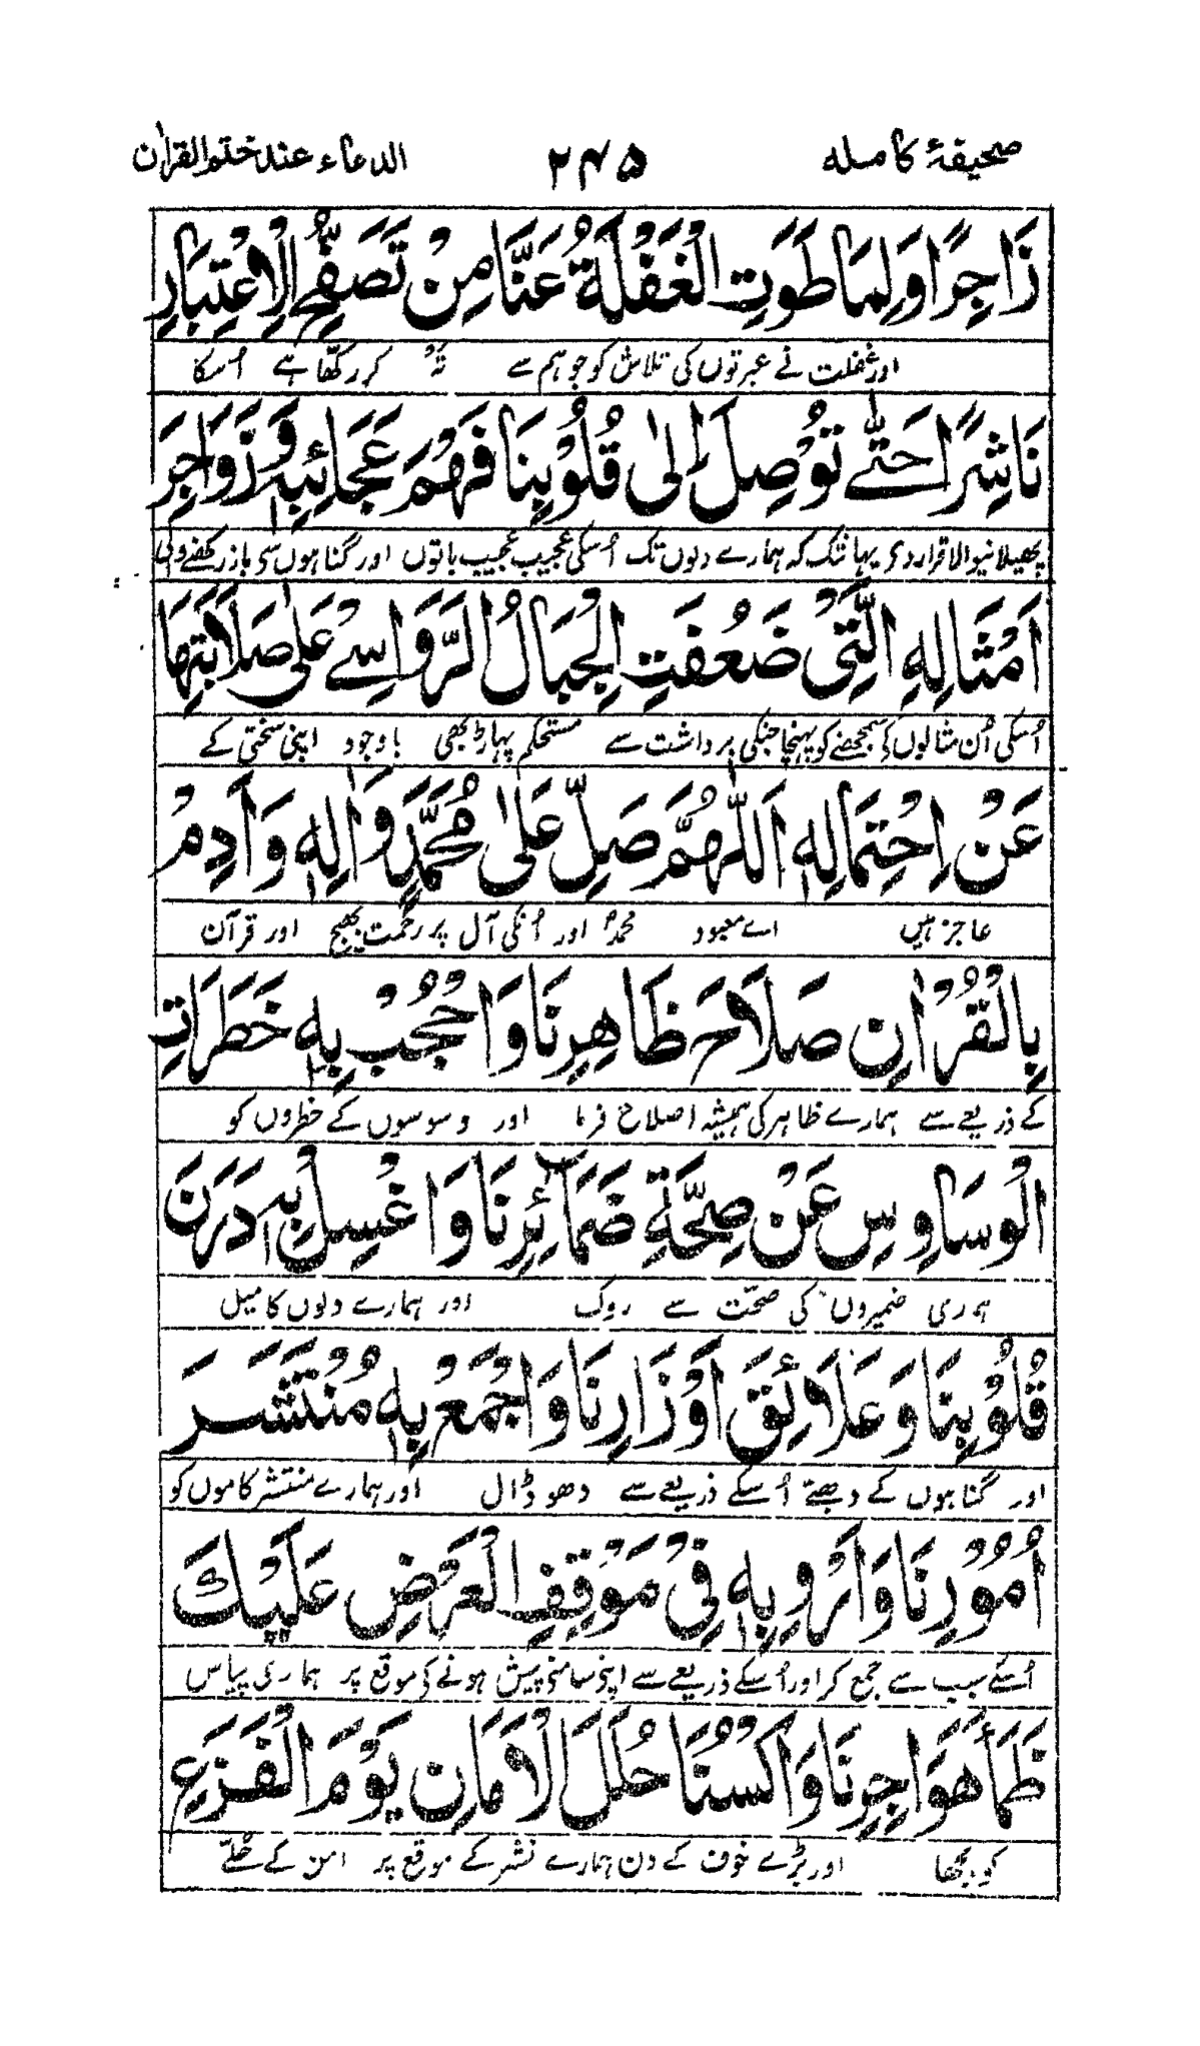 صحیفۂ کاملہ ۲۴۵ الدعاء عند ختم القرآن
زَاجِرًا وَلِمَا طَوَتِ الْغَفْلَةُ عَنَّا مِنْ تَصَفُّحِ الْاِعْتِبَارِ
اور غفلت نے عبرتوں کی تلاش کو جو ہم سے تہ کر رکھّا ہے اُسکا
نَاشِرًا حَتّٰى تُوْصِلَ اِلٰى قُلُوْبِنَا فَهْمَ عَجَائِبِهٖ وَزَوَاجِرَ
پھیلانیوالا قرار دی یہانتک کہ ہمارے دلوں تک اُسکی عجیب عجیب باتوں اور گناہوں سی باز رکھنے والی
اَمْثَالِهِ الَّتِىْ ضَعُفَتِ الْجِبَالُ الرَّوَاسِىْ عَلٰى صَلَابَتِهَا
اُسکی اُن مثالوں کی سمجھنے کو پہنچا جنکی برداشت سے مستحکم پہاڑ بھی باوجود اپنی سختی کے
عَنْ اِحْتِمَالِهٖ اَللّٰهُمَّ صَلِّ عَلٰى مُحَمَّدٍ وَاٰلِهٖ وَاَدِمْ
عاجز ہیں اے معبود محمدؐ اور اُنکی آل پر رحمت بھیج اور قرآن
بِالْقُرْاٰنِ صَلَاحَ ظَاهِرِنَا وَاحْجُبْ بِهٖ خَطَرَاتِ
کے ذریعے سے ہمارے ظاہر کی ہمیشہ اصلاح فرما اور وسوسوں کے خطروں کو
الْوَسَاوِسِ عَنْ صِحَّةِ ضَمَائِرِنَا وَاغْسِلْ بِهٖ دَرَنَ
ہمری ضمیروں کی صحّت سے روک اور ہمارے دلوں کا میل
قُلُوْبِنَا وَعَلَائِقَ اَوْزَارِنَا وَاجْمَعْ بِهٖ مُنْتَشَرَ
اور گناہوں کے دھبّے اُسکے ذریعے سے دھو ڈال اور ہمارے منتشر کاموں کو
اُمُوْرِنَا وَاَرْوِ بِهٖ فِىْ مَوْقِفِ الْعَرْضِ عَلَيْكَ
اُسکے سبب سے جمع کر اور اُسکے ذریعے سے اپنی سامنی پیش ہونے کی موقع پر ہماری پیاس
ظَمَأَ هَوَاجِرِنَا وَاكْسُنَا حُلَلَ الْاَمَانِ يَوْمَ الْفَزَعِ
کو بجھا اور بڑے خوف کے دن ہمارے نشر کے موقع پر امن کے حُلّے